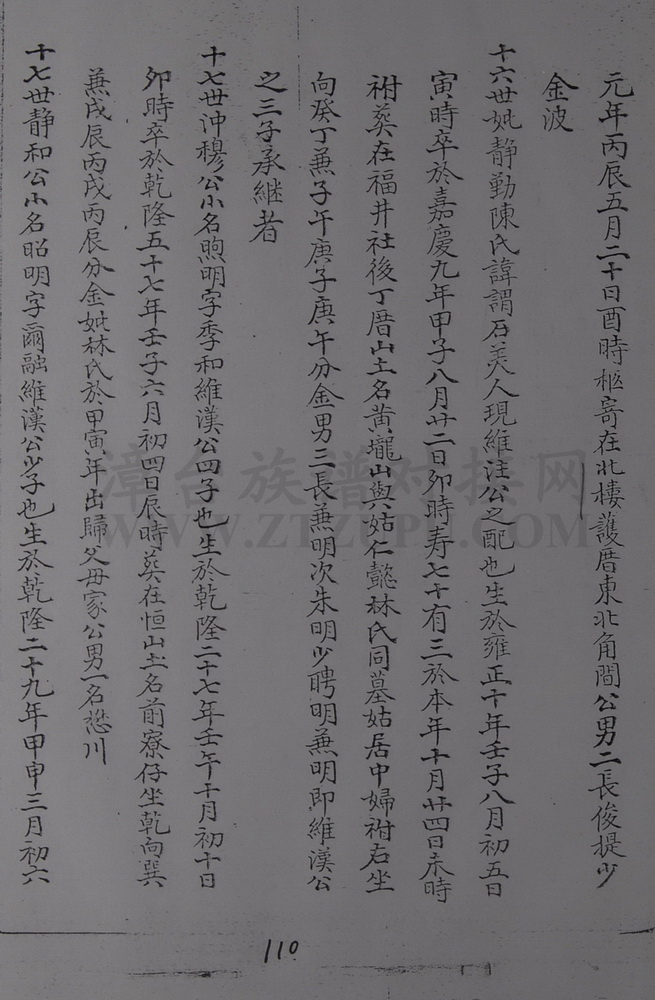 元年丙辰五月二十日酉時柩寄在北棲護厝東北角間公男二長俊提少
金波
十六世妣靜勤陳氏諱謂石美人現維注公之配也生於雍正十年壬子八月初五日
寅時卒於嘉慶九年甲子八月廿二日卯時寿七十有三於本年十月廿四日未時
祔葬在福井社後丁厝山土名黄壠山與姑仁懿林氏同墓姑居中婦祔右坐
向癸丁兼子午庚子庚午分金男三長兼明次朱明少聘明兼明即維漢公
之三子承継者
十七世沖穆公小名煦明字季和維漢公四子也生於乾隆二十七年壬午十月初十日
卯時卒於乾隆五十七年壬子六月初四日辰時葬在恒山土名前寮仔坐乾向巽
兼戌辰丙戌丙辰分金妣林氏於甲寅年出歸父母家公男一名懋川
十七世静和公小名昭明字爾融維漢公少子也生於乾隆二十九年甲申三月初六
110
漳台族谱对接网
WWW.ZTZUPU.COM